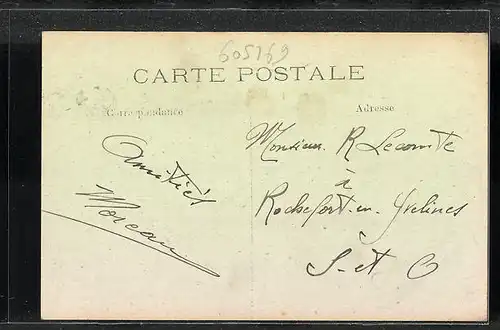 605769
CARTE POSTALE
Correspondance
Adresse
Amitiés
Moreau
Monsieur R Lecomte
à
Rochefort-en-Yvelines
S-et O